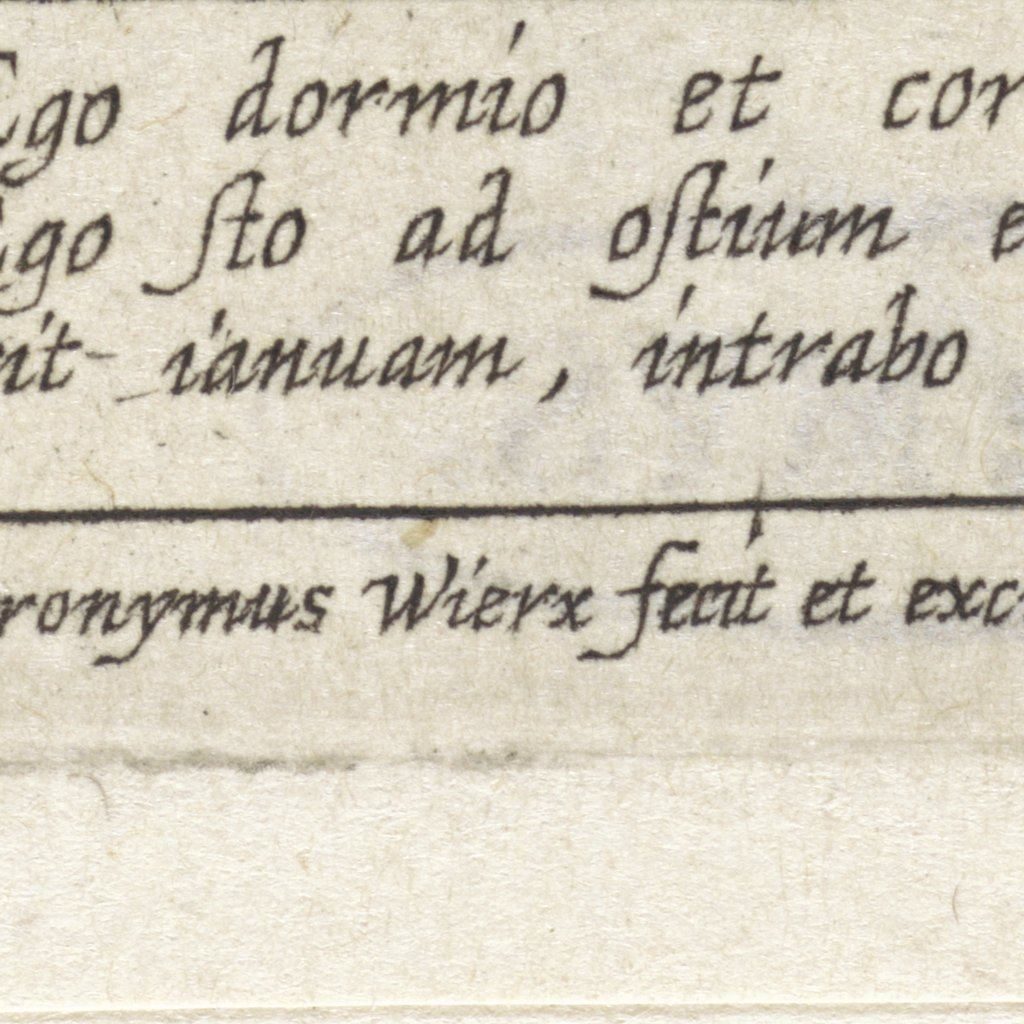 Ego dormio et cor
Ego ſto ad oſtium e
rit ianuam, intrabo
ronymus Wierx fecit et exc